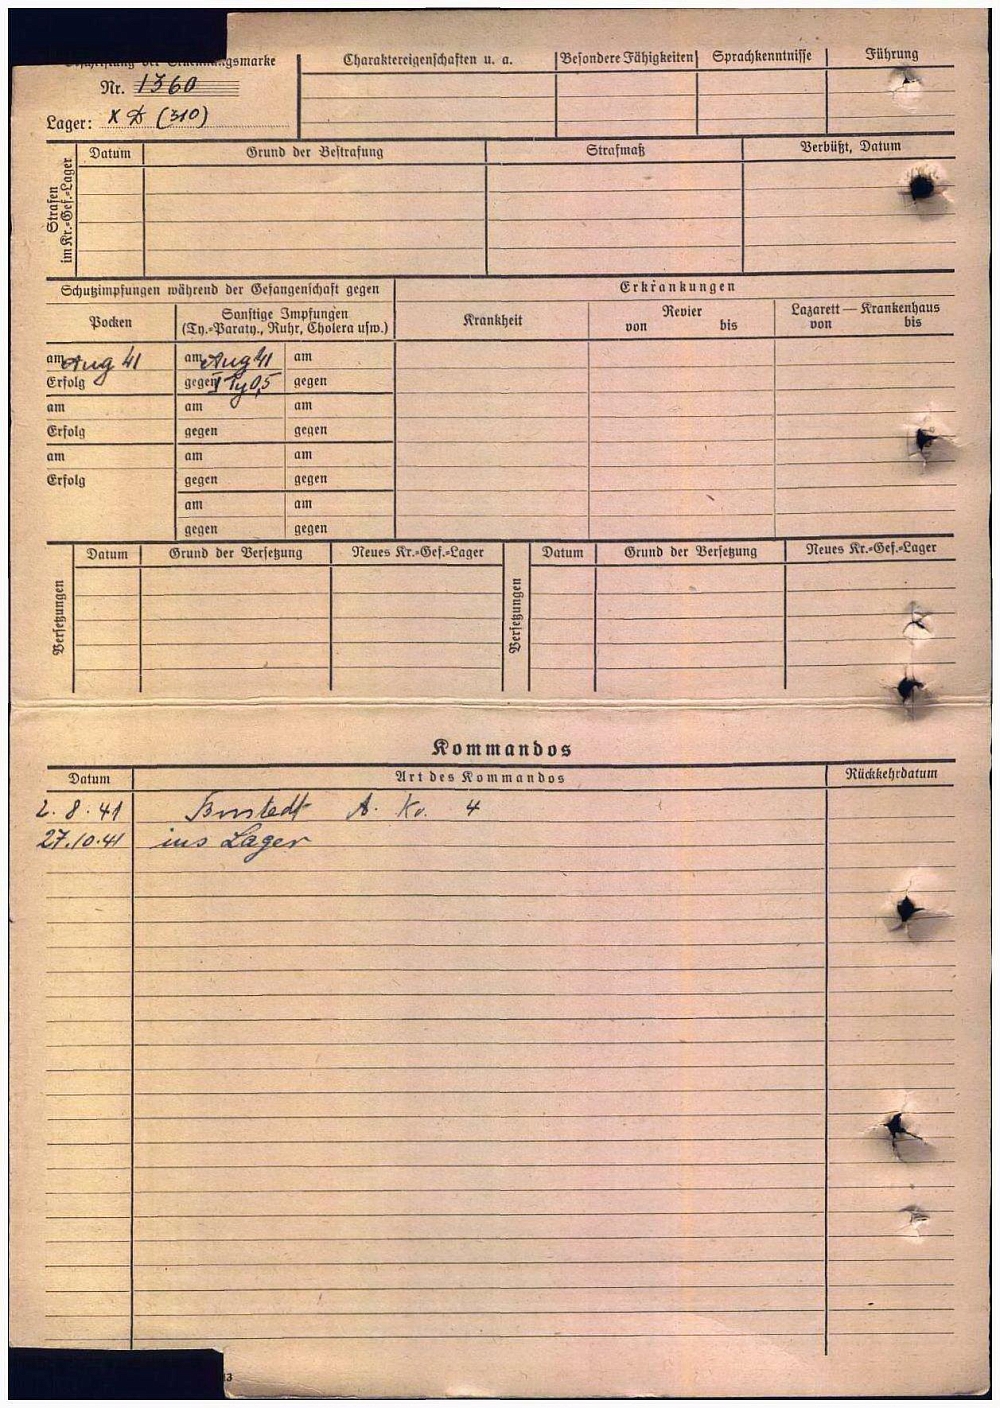 Beschriftung der Erkennungsmarke
Nr. 1360
Lager: X D (310)
Charaktereigenschaften u. a.
Besondere Fähigkeiten
Sprachkenntnisse
Führung
Strafen im Kr.=Gef.=Lager
Datum
Grund der Bestrafung
Strafmaß
Verbüßt, Datum
Schutzimpfungen während der Gefangenschaft gegen
Erkrankungen
Pocken
Sonstige Impfungen
(Ty.=Paraty., Ruhr, Cholera usw.)
Krankheit
Revier
von bis
Lazarett — Krankenhaus
von bis
am Aug 41 am Aug 41 am
Erfolg gegen Ty 0,5 gegen
am am am
Erfolg gegen gegen
am am am
Erfolg gegen gegen
am am
gegen gegen
Versetzungen
Datum
Grund der Versetzung
Neues Kr.=Gef.=Lager
Versetzungen
Datum
Grund der Versetzung
Neues Kr.=Gef.=Lager
Kommandos
Datum Art des Kommandos Rückkehrdatum
2. 8. 41 Borstedt A. Ko. 4
27.10.41 ins Lager